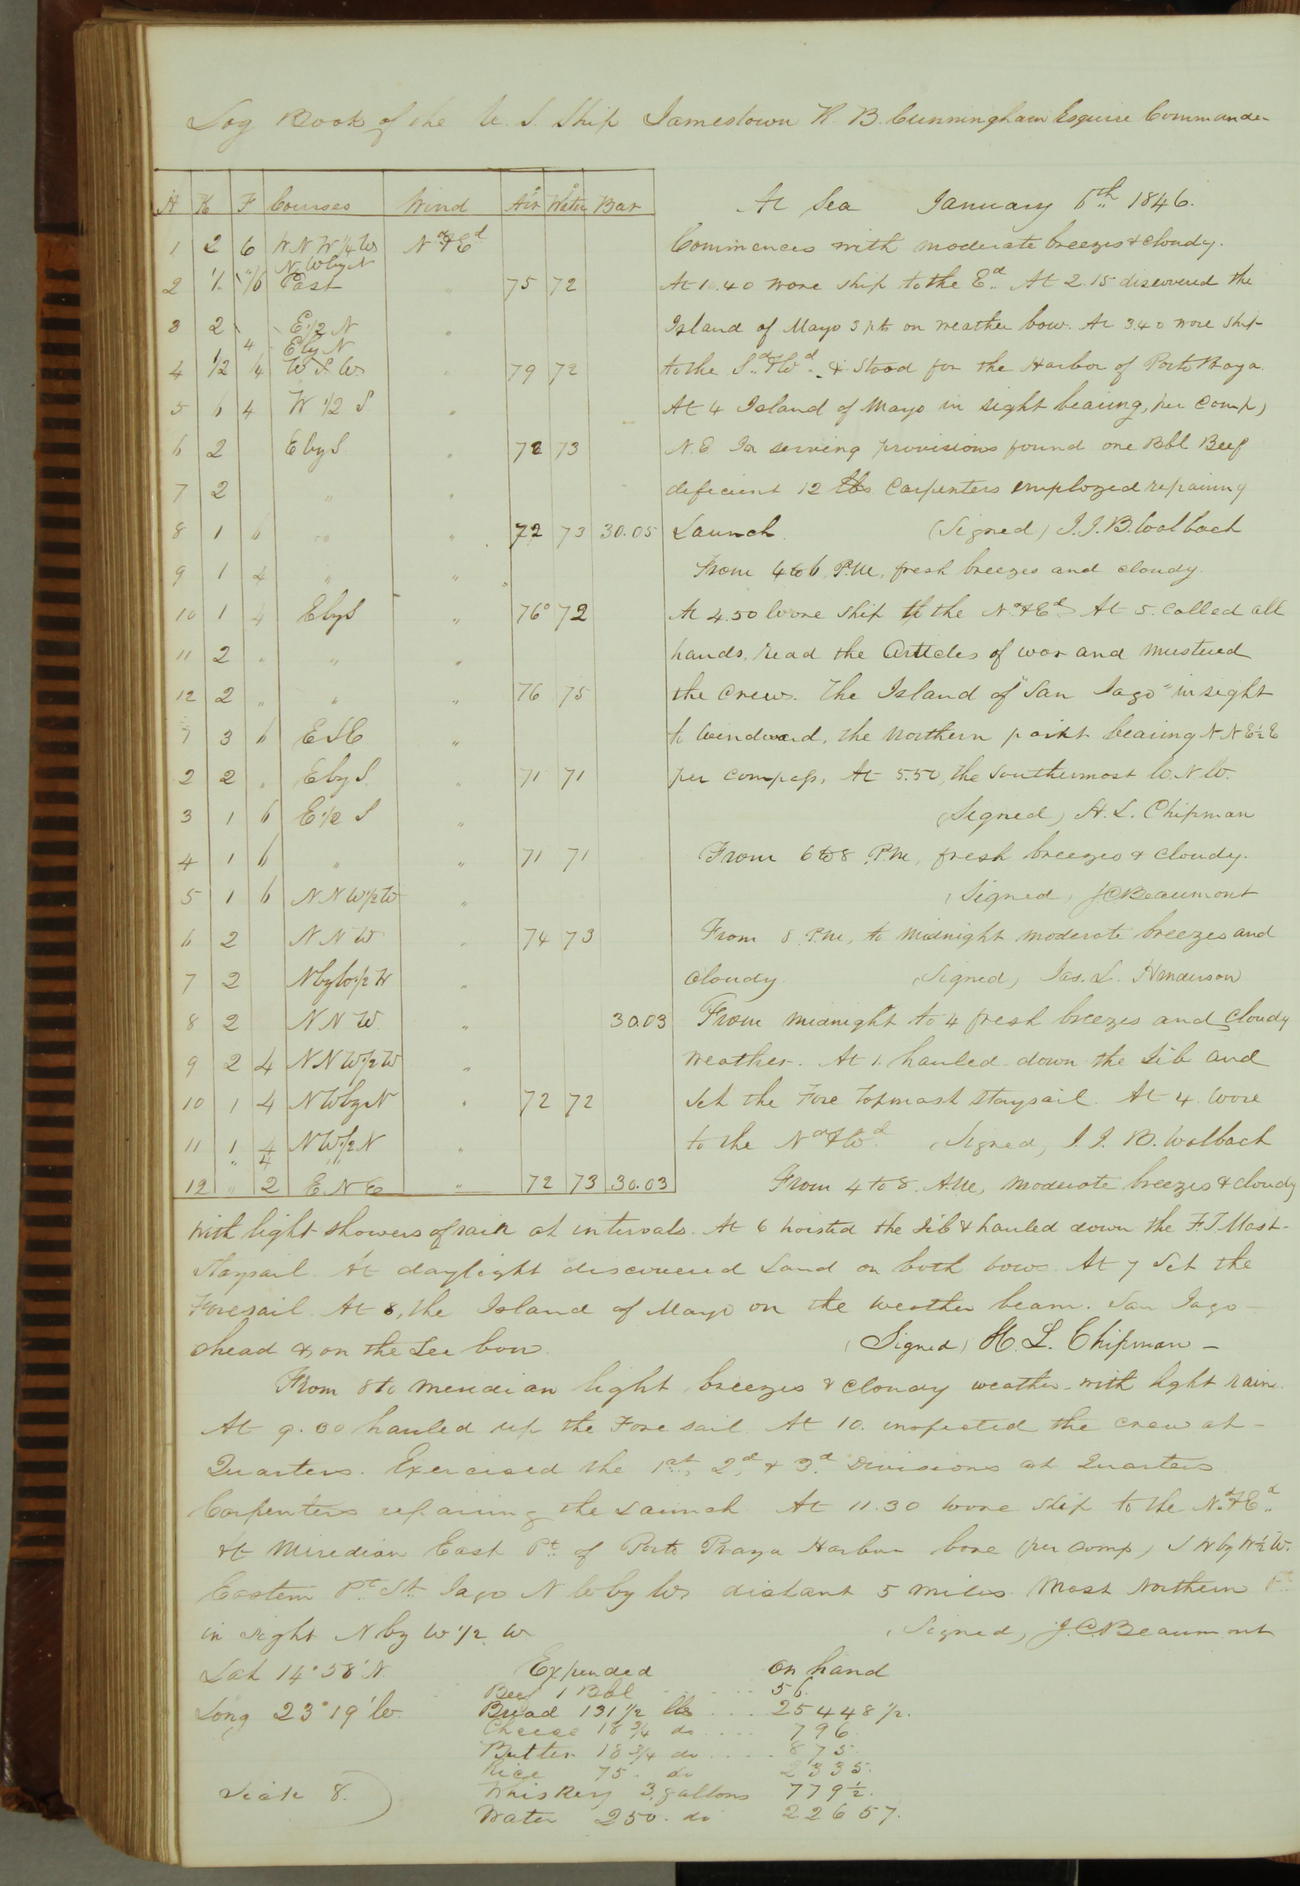 Log Book of the U. S. Ship Jamestown R. B. Cunningham Esquire Commander
H K F Courses Wind Air Water Bar
At Sea January 6th 1846.
1 2 6 W.N.W ¼ W Nd & Ed
Commences with moderate breezes & cloudy.
N. W by N
2 East " 75 72
At 1.40 wore ship to the Ed. At 2.15 discovered the
3 2 E ½ N "
Island of Mayo 3 pts on weather bow. At 3.40 wore ship
E by N
4 W S W " 79 72
to the Sd & Wd. & Stood for the Harbor of Porto Praya.
5 6 4 W ½ S "
At 4 Island of Mayo in sight bearing, per comp,
6 2 E by S " 72 73
N.E. In serving provisions found one Bbl Beef
7 2 " "
deficient 12 lbs Carpenters employed repairing
8 1 6 " " 72 73 30.05
Launch. (Signed) J. J. B. Walbach
9 1 4 " "
From 4 to 6 P.M, fresh breezes and cloudy.
10 1 4 E by S " 76° 72
At 4.50 Wore Ship to the Nd & Ed At 5. called all
11 2 " " "
hands, read the Articles of war and mustered
12 2 " " " 76 75
the crew. The Island of "San Iago" in sight
3 6 E S E "
to windward, the Northern point bearing N N E ½ E
2 2 " E by S. " 71 71
per compass, At 5.50, the southermost W. N. W.
3 1 6 E ½ S "
(Signed) H. L. Chipman
4 1 6 " " 71 71
From 6 to 8 P.M, fresh breezes & cloudy.
5 1 6 N N W ½ W "
(Signed) J C Beaumont
6 2 N N W " 74 73
From 8 P.M, to Midnight moderate breezes and
7 2 N by W ½ W "
cloudy (Signed) Jas. L. Henderson
8 2 N N W. " 30.03
From midnight to 4 fresh breezes and cloudy
9 2 4 N N W ½ W "
weather. At 1. hauled down the Jib and
10 1 4 N W by N " 72 72
Set the Fore Topmast Staysail. At 4. Wore
11 1 4 N W ½ N "
to the Nd & Wd. (Signed) J. J. B. Walbach
" 4 "
12 " 2 E. N E " 72 73 30.03
From 4 to 8. A.M, moderate breezes & cloudy
with light showers of rain at intervals. At 6 hoisted the Jib & hauled down the F. T. Mast-
Staysail. At daylight discovered Land on both bows. At 7 Set the
Foresail. At 8, the Island of Mayo on the weather beam. San Iago
ahead & on the Lee bow. (Signed) H. L. Chipman
From 8 to Meridian light breezes & cloudy weather with light rain.
At 9.30 hauled up the Fore sail. At 10. inspected the crew at
Quarters. Exercised the 1st, 2d, & 3d. Divisions at Quarters
Carpenters repairing the Launch. At 11.30 wore Ship to the Nd & Ed.
At Meredian East Pt. of Porto Praya Harbor bore (per comp) S W by W ½ W.
Eastern Pt. St. Iago N W by W distant 5 miles Most Northern Pt.
in sight N by W ½ W (Signed) J. C. Beaumont
Lat 14° 58' N. Expended On hand
Beef 1 Bbl 56.
Long 23° 19' W. Bread 131 ½ lbs 25448 ½.
Cheese 18 ¾ do 796.
Butter 18 ¾ do 875.
Rice 75. do 2335.
Sick 8. Whiskey 3. gallons 779 ½.
Water 250. do 22657.